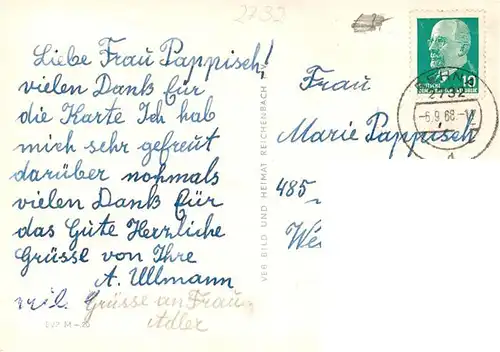 2732
Liebe Frau Pappisch!
vielen Dank für
die Karte Ich hab
mich sehr gefreut
darüber nohmals
vielen Dank für
das Gute Herzliche
Grüsse von Ihre
A. Ullmann
viel. Grüsse an Frau
Adler
VEB BILD UND HEIMAT REICHENBACH
10
2732
-6.9.68.-17
Frau
Marie Pappisch
485-
We